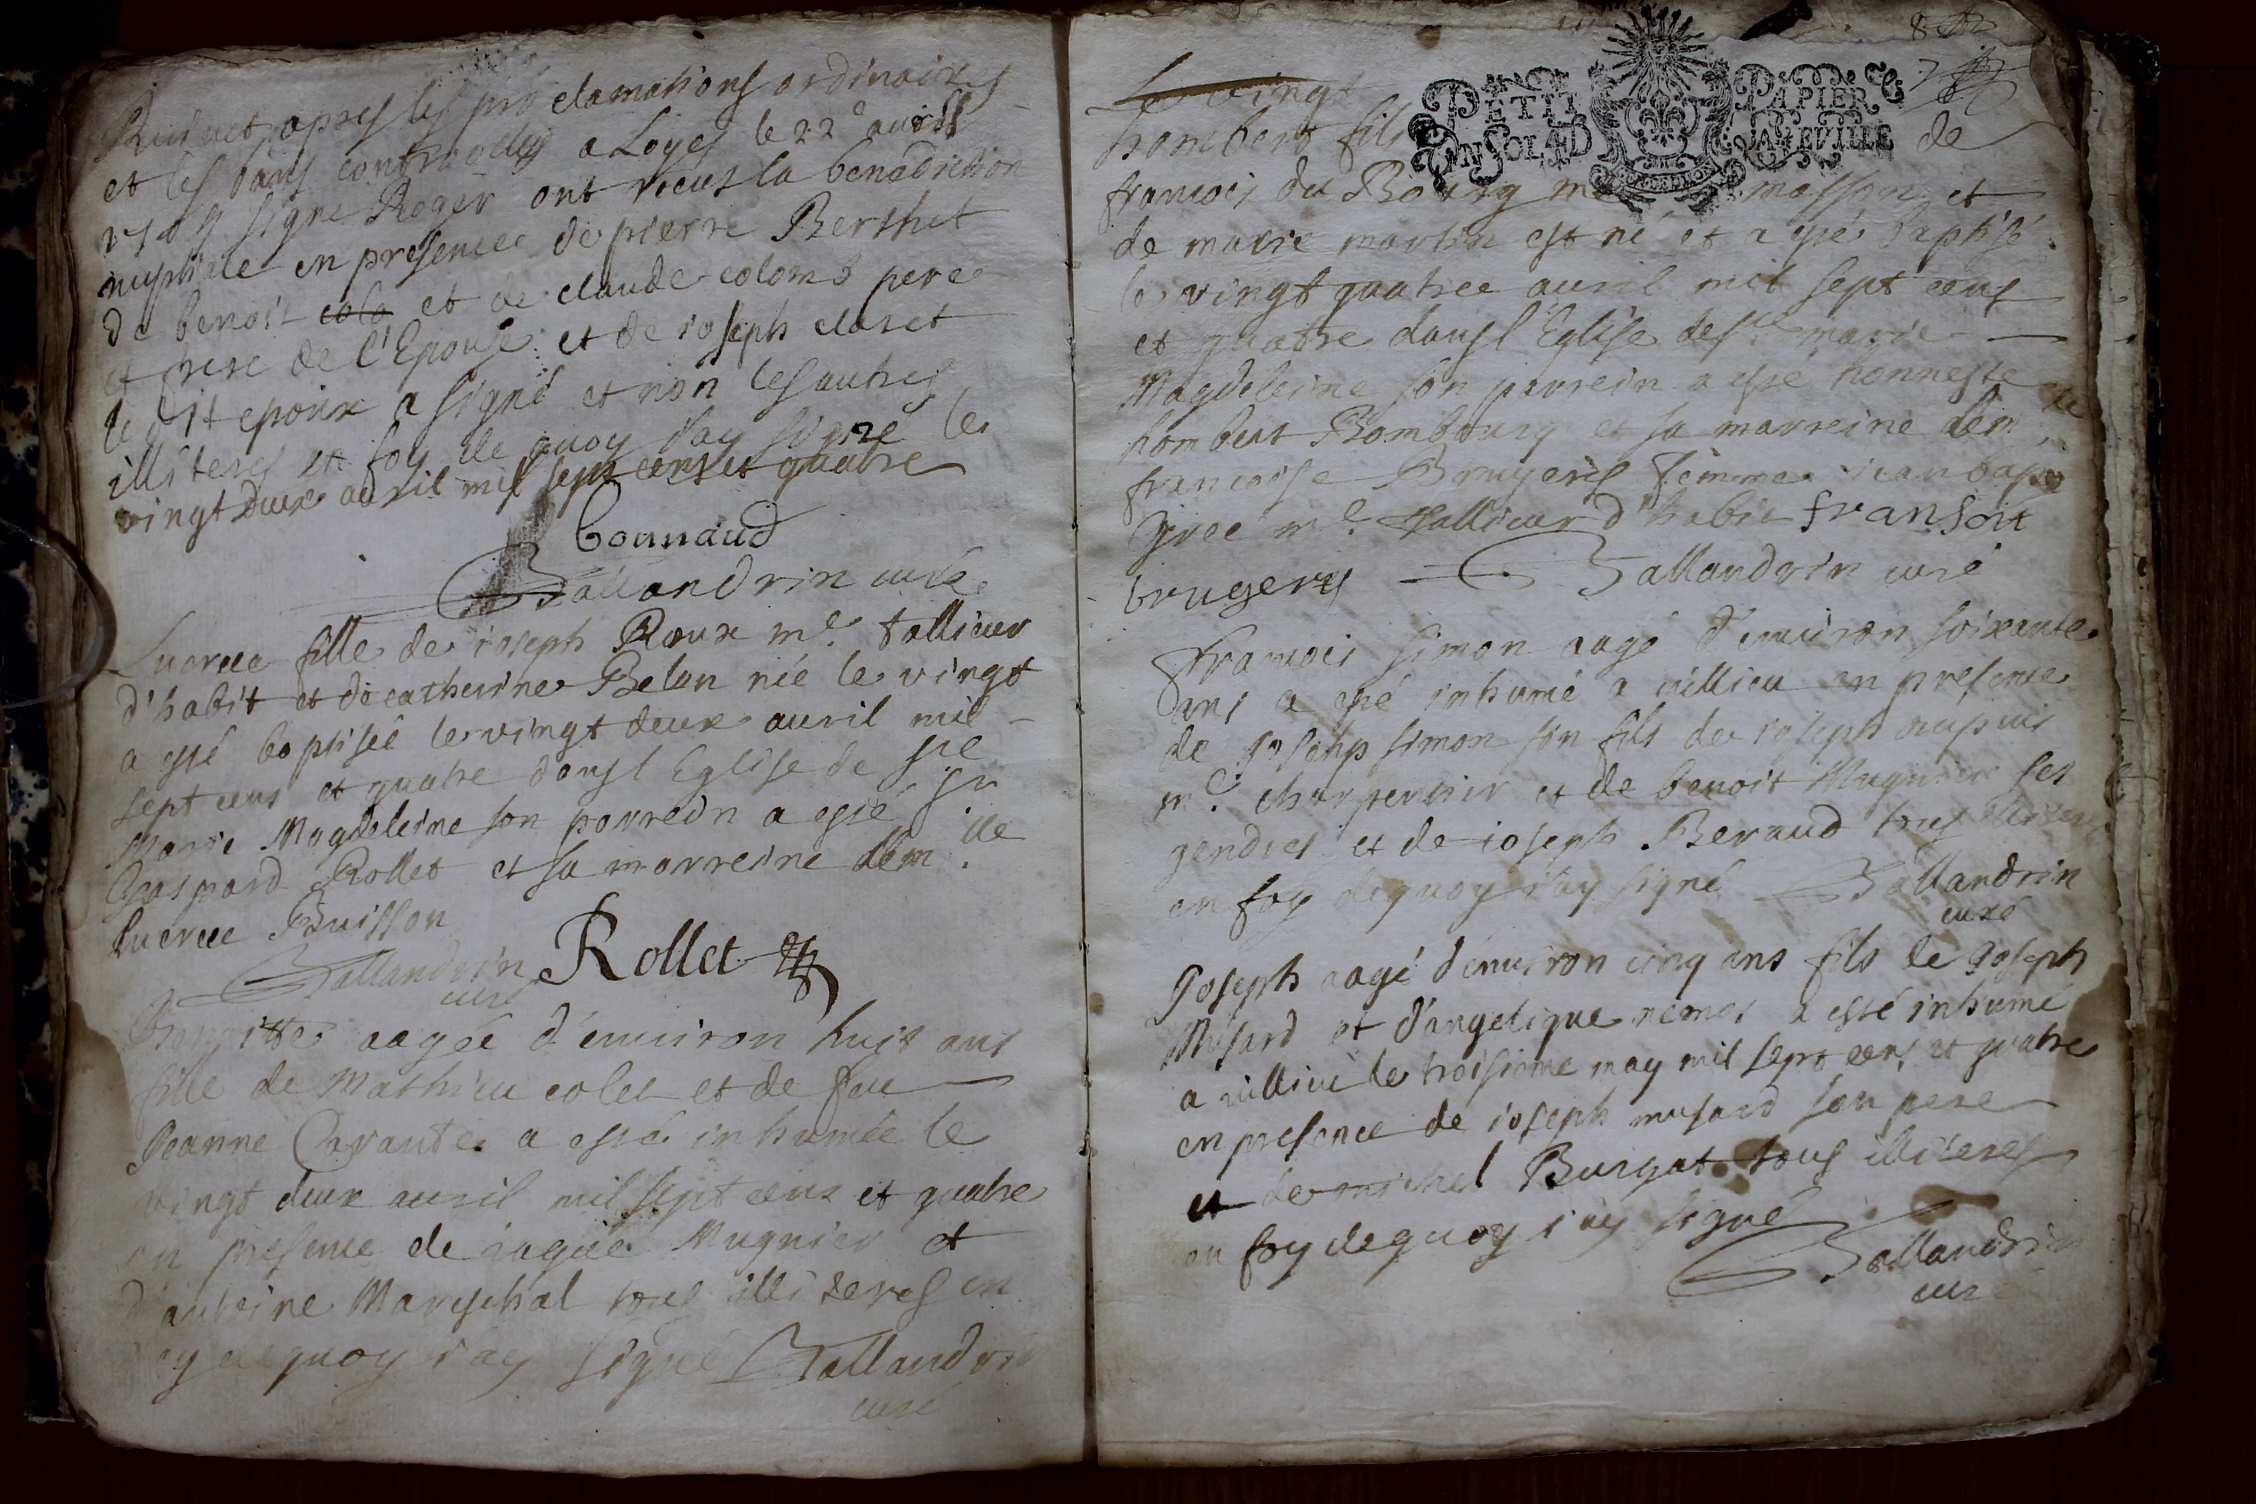 apres les proclamations ordinaires
et les bans controollés a Loyes le 22e auril
1704 signé Roger ont recus la benediction
nuptiale en presence de pierre Berthet
de benoit cola et de claude colomb pere
et frere de l'Epouse et de ioseph claret
le dit epoux a signé et non les autres
illiteres en foy de quoy i'ay signé le
vingt deux auril mil sept cens et quatre
bonnaud
Ballandrin curé
Lucrece fille de ioseph Roux me tallieur
d'habit et de catherine Belan née le vingt
a esté baptisée le vingt deux auril mil
sept cens et quatre dans l Eglise de ste
Marie Magdeleine son parrein a esté sr
Gaspard Rollet et sa marreine dem.lle
lucrece Buisson
Ballandrin Rollet
curé
Benoitte aagée d'enuiron huit ans
fille de Mathieu colet et de feu
Jeanne a esté inhumée le
vingt deux auril mil sept cens et quatre
en presence de iaque Mugnier et
d'anteine Mareschal tous illiteres en
foy de quoy i'ay signé Ballandrin
curé
8
Le vingt
PETIT PAPIER
UN SOL 4 D LA FEUILLE
hombert fils de
francois du Bourg me masson et
de marie martin est né et a esté baptisé
le vingt quatree auril mil sept cens
et quatre dans l Eglise de ste marie
Magdeleine son parrein a esté honneste
hombert Bombourg et sa marreine dem.lle
francoise Bruyeres femme iean bap
me tallieur d'habit fransoit
brugerys Ballandrin curé
francois simon aagé d'enuiron soixante
ans a esté inhumé a uillieu en presence
de Joseph simon son fils de ioseph dupuis
me charpentier et de benoit Mugnier ses
gendres et de ioseph Beraud tous illiteres
en foy de quoy i'ay signé Ballandrin
curé
Joseph aagé d'enuiron cinq ans fils de Joseph
Musard et d'angelique remos a esté inhumé
a uillieu le troisieme may mil sept cens et quatre
en presence de ioseph musard son pere
et de michel Burgat tous illiteres
en foy de quoy i'ay signé
Ballandrin
curé